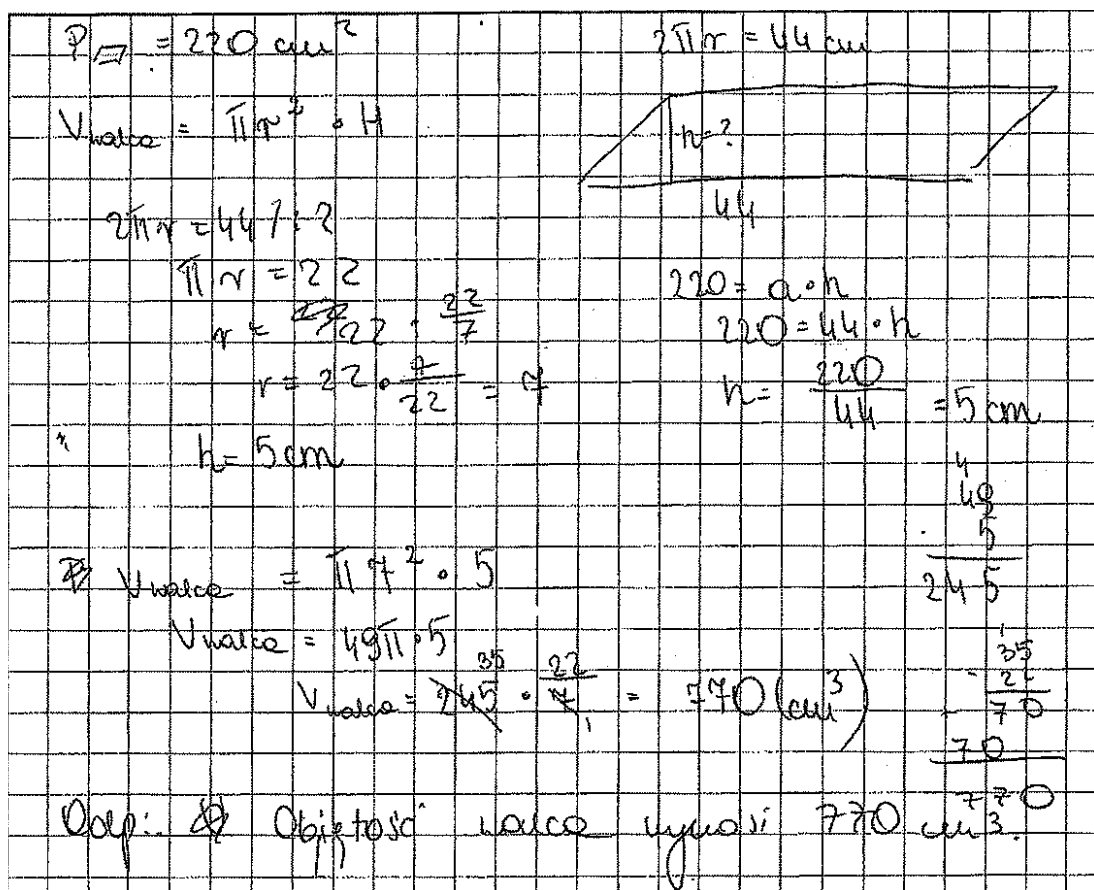 P▱ = 220 cm²
2πr = 44 cm
Vwalca = πr² · H
h=?
44
2πr = 44 /:2
πr = 22
r = 22 : 22/7
r = 22 · 7/22 = 7
h = 5 cm
220 = a·h
220 = 44·h
h = 220/44 = 5 cm
4
49
· 5
245
Vwalca = π7² · 5
Vwalca = 49π·5
Vwalca = 245 35 · 22/7 1 = 770 (cm³)
1
35
· 22
70
70
770
Odp.: Objętość walca wynosi 770 cm³.